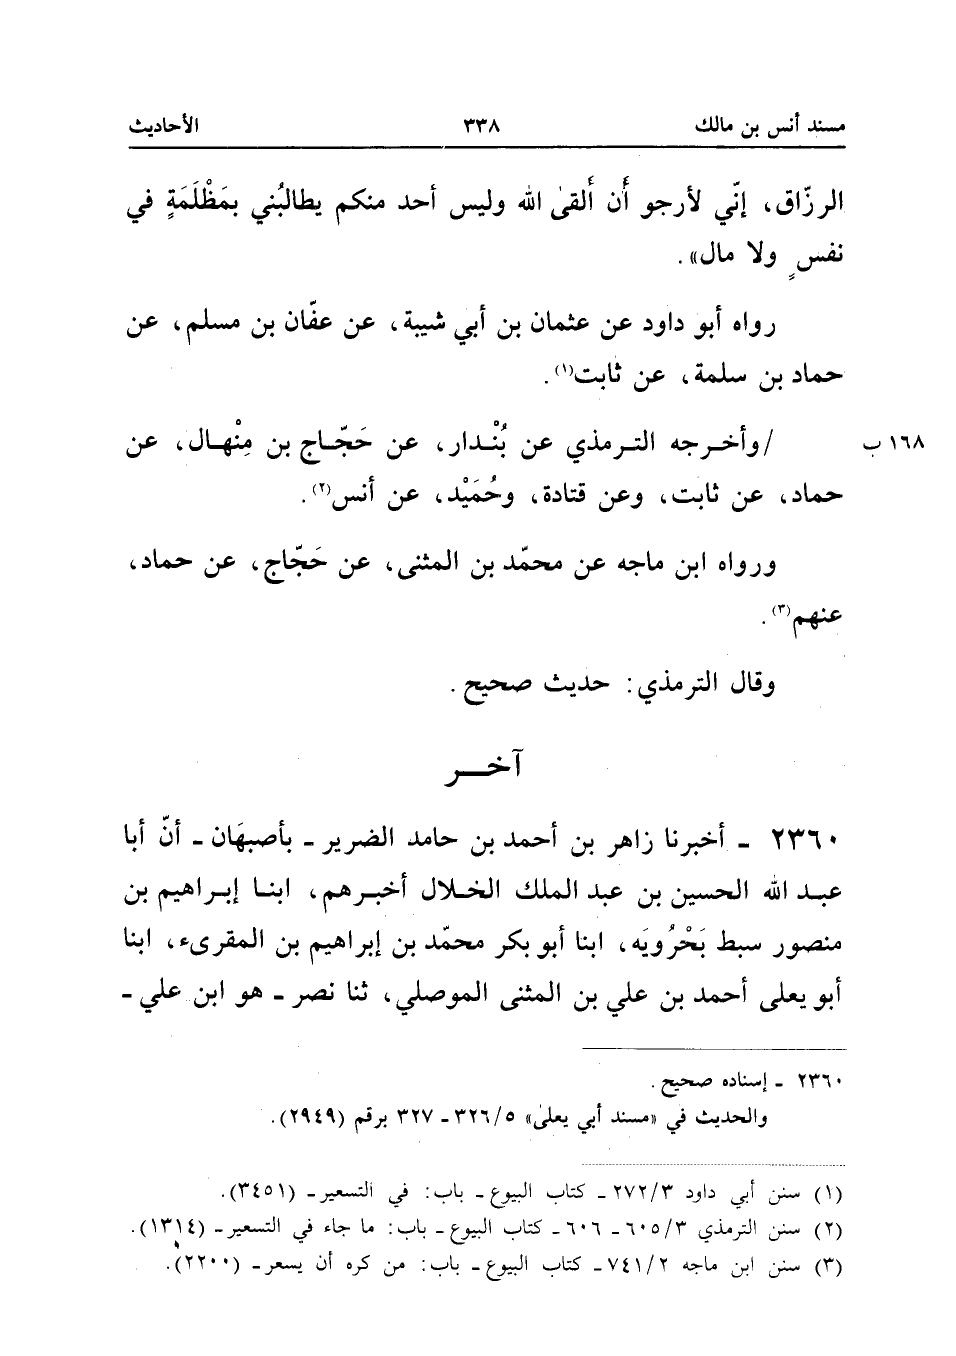 مسند أنس بن مالك ٣٣٨ الأحاديث
الرزّاق، إنّي لأرجو أَن أَلقىٰ الله وليس أحد منكم يطالبُني بمَظْلَمَةٍ في
نفسٍ ولا مال».
رواه أبو داود عن عثمان بن أبي شيبة، عن عفّان بن مسلم، عن
حماد بن سلمة، عن ثابت(١).
١٦٨ ب /وأخرجه الترمذي عن بُنْدار، عن حَجّاج بن مِنْهال، عن
حماد، عن ثابت، وعن قتادة، وحُمَيْد، عن أنس(٢).
ورواه ابن ماجه عن محمّد بن المثنى، عن حَجّاج، عن حماد،
عنهم(٣).
وقال الترمذي: حديث صحيح.
آخر
٢٣٦٠ - أخبرنا زاهر بن أحمد بن حامد الضرير - بأصبهَان - أنّ أبا
عبد الله الحسين بن عبد الملك الخلال أخبرهم، ابنا إبراهيم بن
منصور سبط بَحْرُويَه، ابنا أبو بكر محمّد بن إبراهيم بن المقرىء، ابنا
أبو يعلى أحمد بن علي بن المثنى الموصلي، ثنا نصر - هو ابن علي -
٢٣٦٠ - إسناده صحيح.
والحديث في «مسند أبي يعلىٰ» ٣٢٦/٥ - ٣٢٧ برقم (٢٩٤٩).
(١) سنن أبي داود ٢٧٢/٣ - كتاب البيوع - باب: في التسعير - (٣٤٥١).
(٢) سنن الترمذي ٦٠٥/٣ - ٦٠٦ - كتاب البيوع - باب: ما جاء في التسعير - (١٣١٤).
(٣) سنن ابن ماجه ٧٤١/٢ - كتاب البيوع - باب: من كره أن يسعر - (٢٢٠٠).